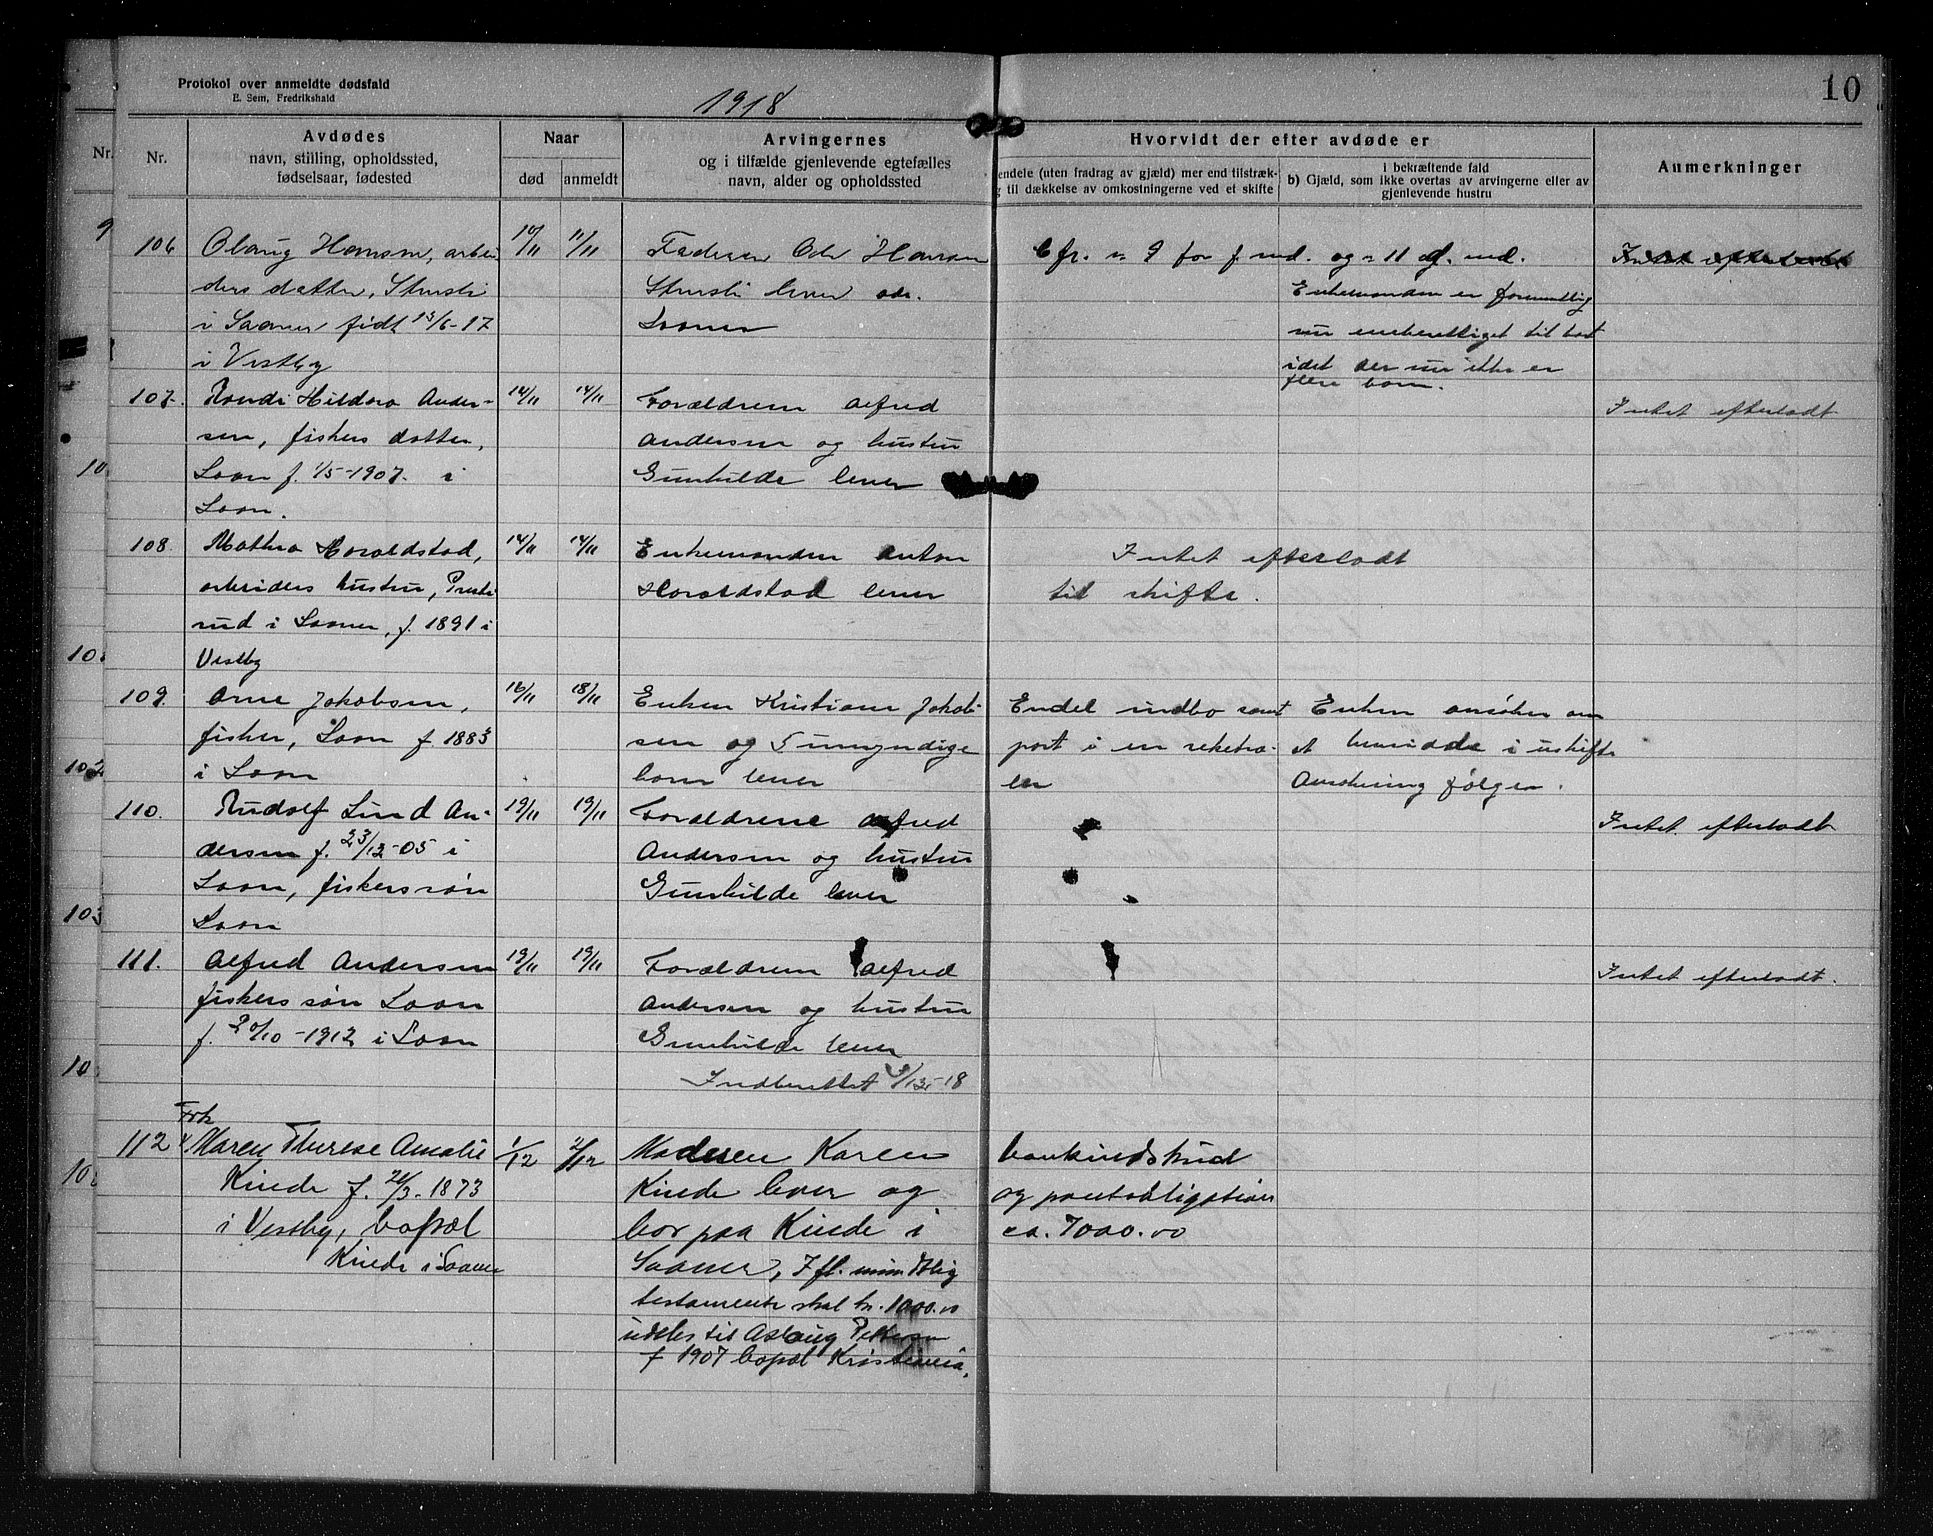 Protokol over anmeldte dødsfald
E. Sem, Fredrikshald
1918
10
Nr.
Nr.
Avdødes
navn, stilling, opholdssted,
fødselsaar, fødested
Naar
død
anmeldt
Arvingernes
og i tilfælde gjenlevende egtefælles
navn, alder og opholdssted
Hvorvidt der efter avdøde er
endele (uten fradrag av gjæld) mer end tilstræk-
g til dækkelse av omkostningerne ved et skifte
i bekræftende fald
b) Gjæld, som ikke overtas av arvingerne eller av
gjenlevende hustru
Anmerkninger
106 Olaug Hansen, arbei
ders datter,
i Saaner født 15/6-17
i Vestby
10/11 11/11
Faderen Odr Hansen
lever
Saaner
Cfr. n 9 for f. md. og n 11 d. md.
Enkemanden er formentlig
nu eneberettiget til boet
idet der nu ikke er
flere barn.
Intet efterladt
107. Randi Hildora Ander-
sen, fiskers datter,
Soon f. 1/5-1907. i
Soon.
14/11 14/11
Forældrene Alfred
Andersen og hustru
Gunhilde lever
Intet efterladt
108. Mathea Haraldstad,
arbeiders hustru, Prest
rud i Saaner, f. 1891 i
Vestby
14/11 14/11
Enkemanden Anton
Haraldstad lever
Intet efterladt
til skifte.
109. Arne Jakobsen,
fisker, Soon f 1883
i Soon
16/11 18/11
Enken Kristiane Jakob-
sen og 5 umyndige
barn lever
Endel indbo samt
part i en reketra-
ler
Enken ansøker om
at hensidde i uskifte
Ansøkning følger.
110. Rudolf Lund An-
dersen f. 23/12-05 i
Soon, fiskers søn
Soon
19/11 19/11
Forældrene Alfred
Andersen og hustru
Gunhilde lever
Intet efterladt
111. Alfred Andersen
fiskers søn Soon
f. 20/10-1912 i Soon
19/11 19/11
Forældrene Alfred
Andersen og hustru
Gunhilde lever
Indberettet /12-18
Intet efterladt.
112 Frk
Maren Therese Amalie
Kinde f. 26/3-1873
i Vestby, bopæl
Kinde i Saaner
1/12 2/12
Moderen Karen
Kinde lever og
bor paa Kinde i
Saaner, Ifl. mundtlig
testamente skal kr. 1000.00
utdeles til Aslaug Pettersen
f 1907 bopæl Kristiania.
bankindskud
og pantobligation
ca. 7000.00